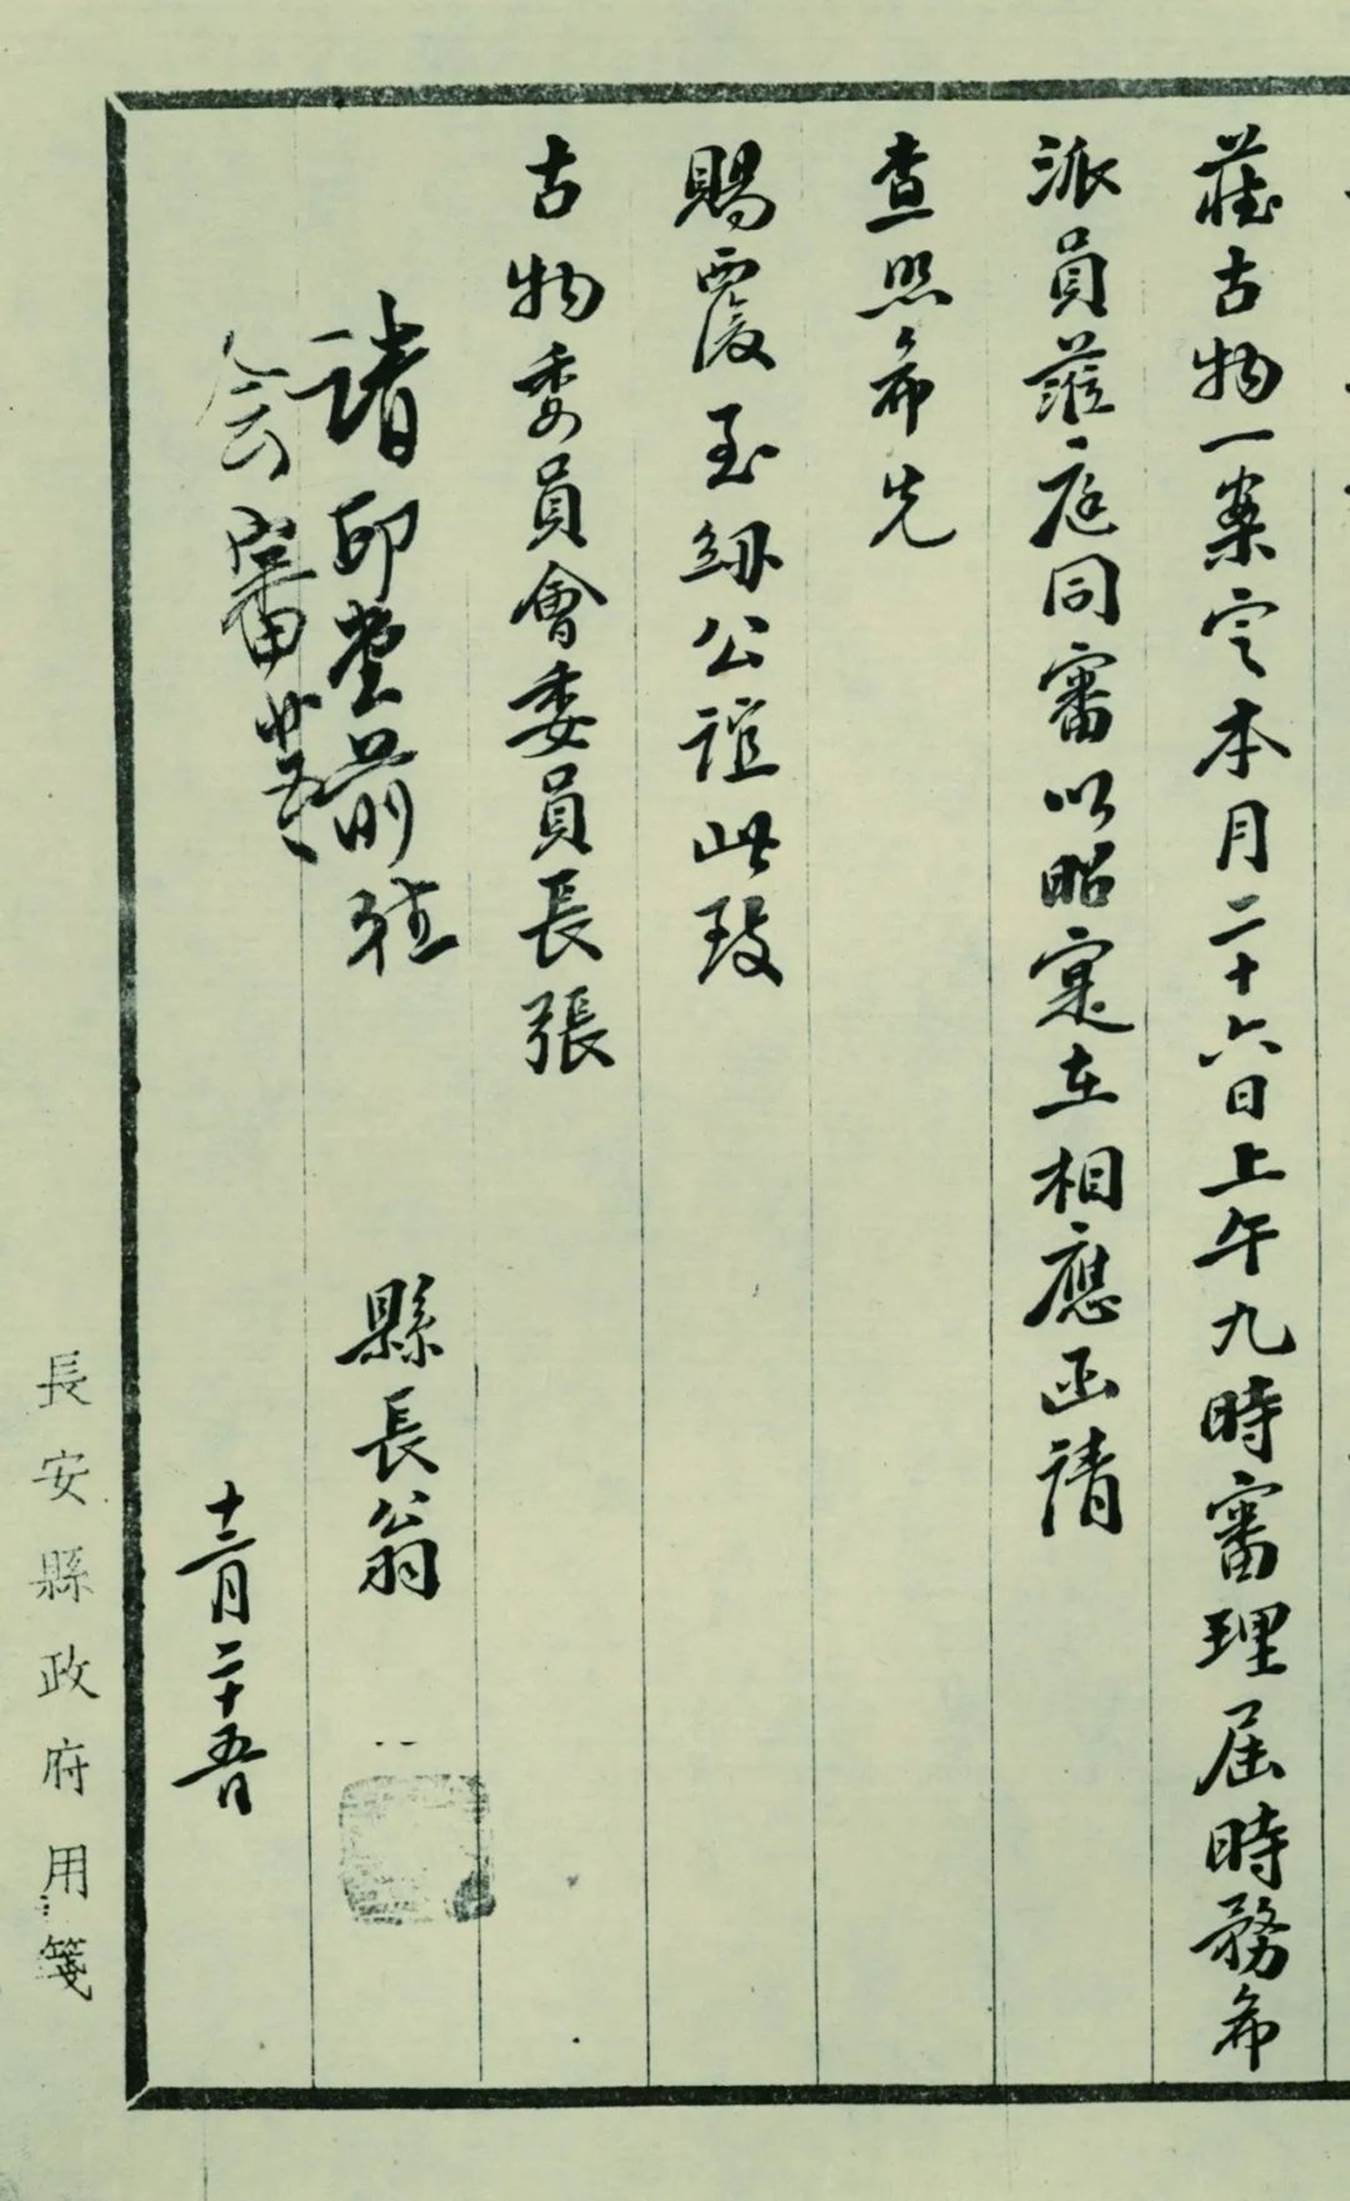 藏古物一案定本月二十六日上午九時審理屆時務希
派員蒞庭同審以昭寔在相應函請
查照希先
賜覆至紉公誼此致
古物委員會委員長張
縣長翁
請印堂前往
会審 廿五
十二月二十五日
長安縣政府用箋